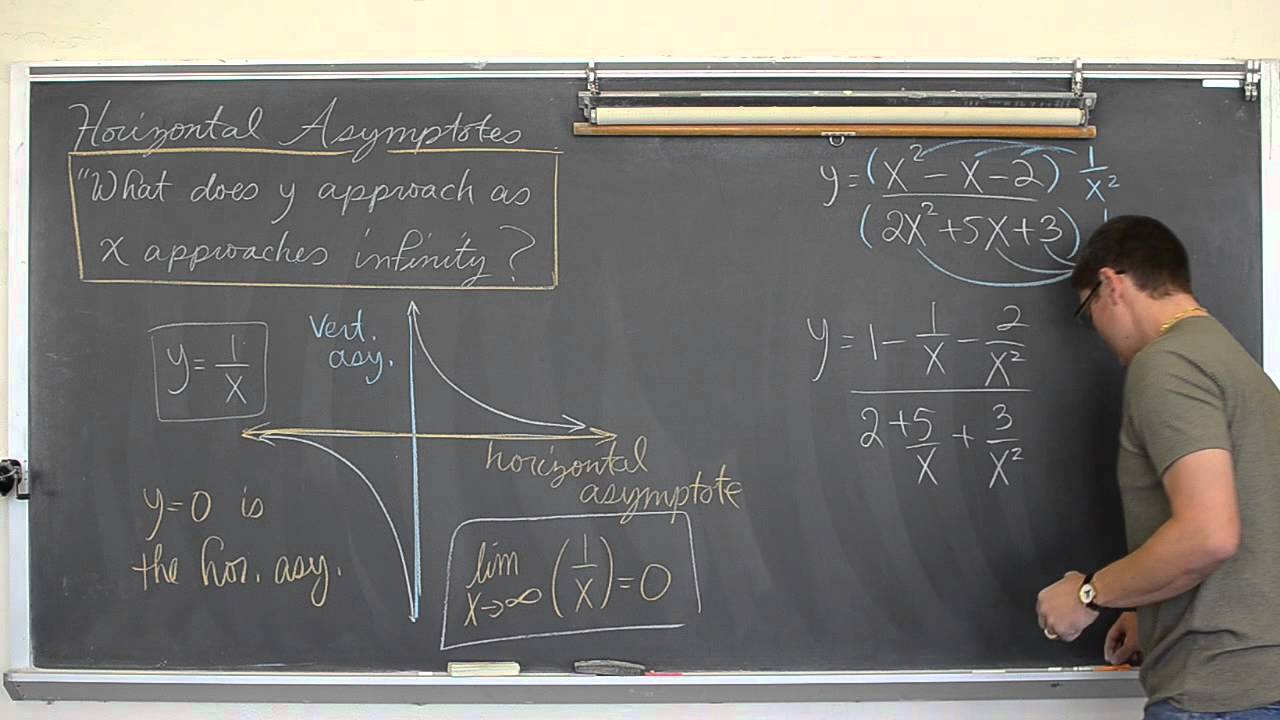 Horizontal Asymptotes
"What does y approach as
x approaches infinity?
y = 1/x
vert.
asy.
horizontal
asymptote
y=0 is
the hor. asy.
lim x→∞ (1/x) = 0
y = (x² - x - 2) 1/x²
(2x² + 5x + 3) 1
y = 1 - 1/x - 2/x²
2 + 5/x + 3/x²